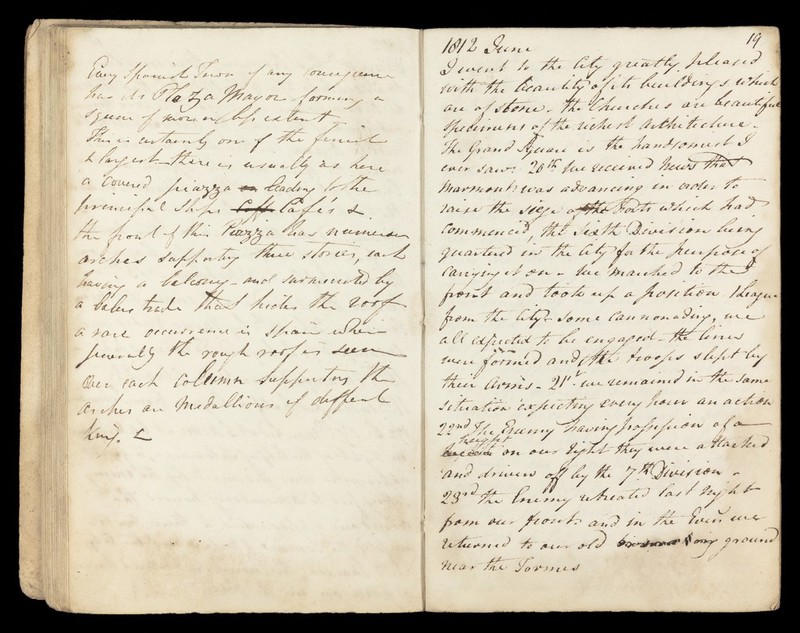 Every Spanish Town of any consequence
has its Plaza Mayor forming a
Square of more or less extent
This is certainly one of the finest
& largest - there is usually as here
a Covered piazza leading to the
principal Shops Cafés &
the front of this Piazza has numerous
arches supporting three stories, each
having a balcony - and surmounted by
a balustrade that hides the roof
a rare occurrence in Spain where
generally the rough roof is seen
Over each column supporting the
arches are Medallions of different
Kings. &
1812 June 19
I went to the City greatly pleased
with the beautility of its buildings which
are of stone. the Churches are beautiful
specimens of the richest Architecture.
The Grand Square is the handsomest I
ever saw: 20th we received News that
Marmont was advancing in order to
raise the siege of the Forts which had
commenc'd, the Sixth Division being
quartered in the City for the purpose of
carrying it on - we marched to the
front and took up a position 1 League
from the City. some Cannonading, we
all expected to be engaged - the lines
were formed and the troops slept by
their Arms - 21st we remained in the same
situation expecting every hour an action
22nd The Enemy having possession of a
height on our right they were attacked
and driven off by the 7th Division.
23rd the Enemy retreated last night
from our front and in the Even we
returned to our old ground
near the Tormes